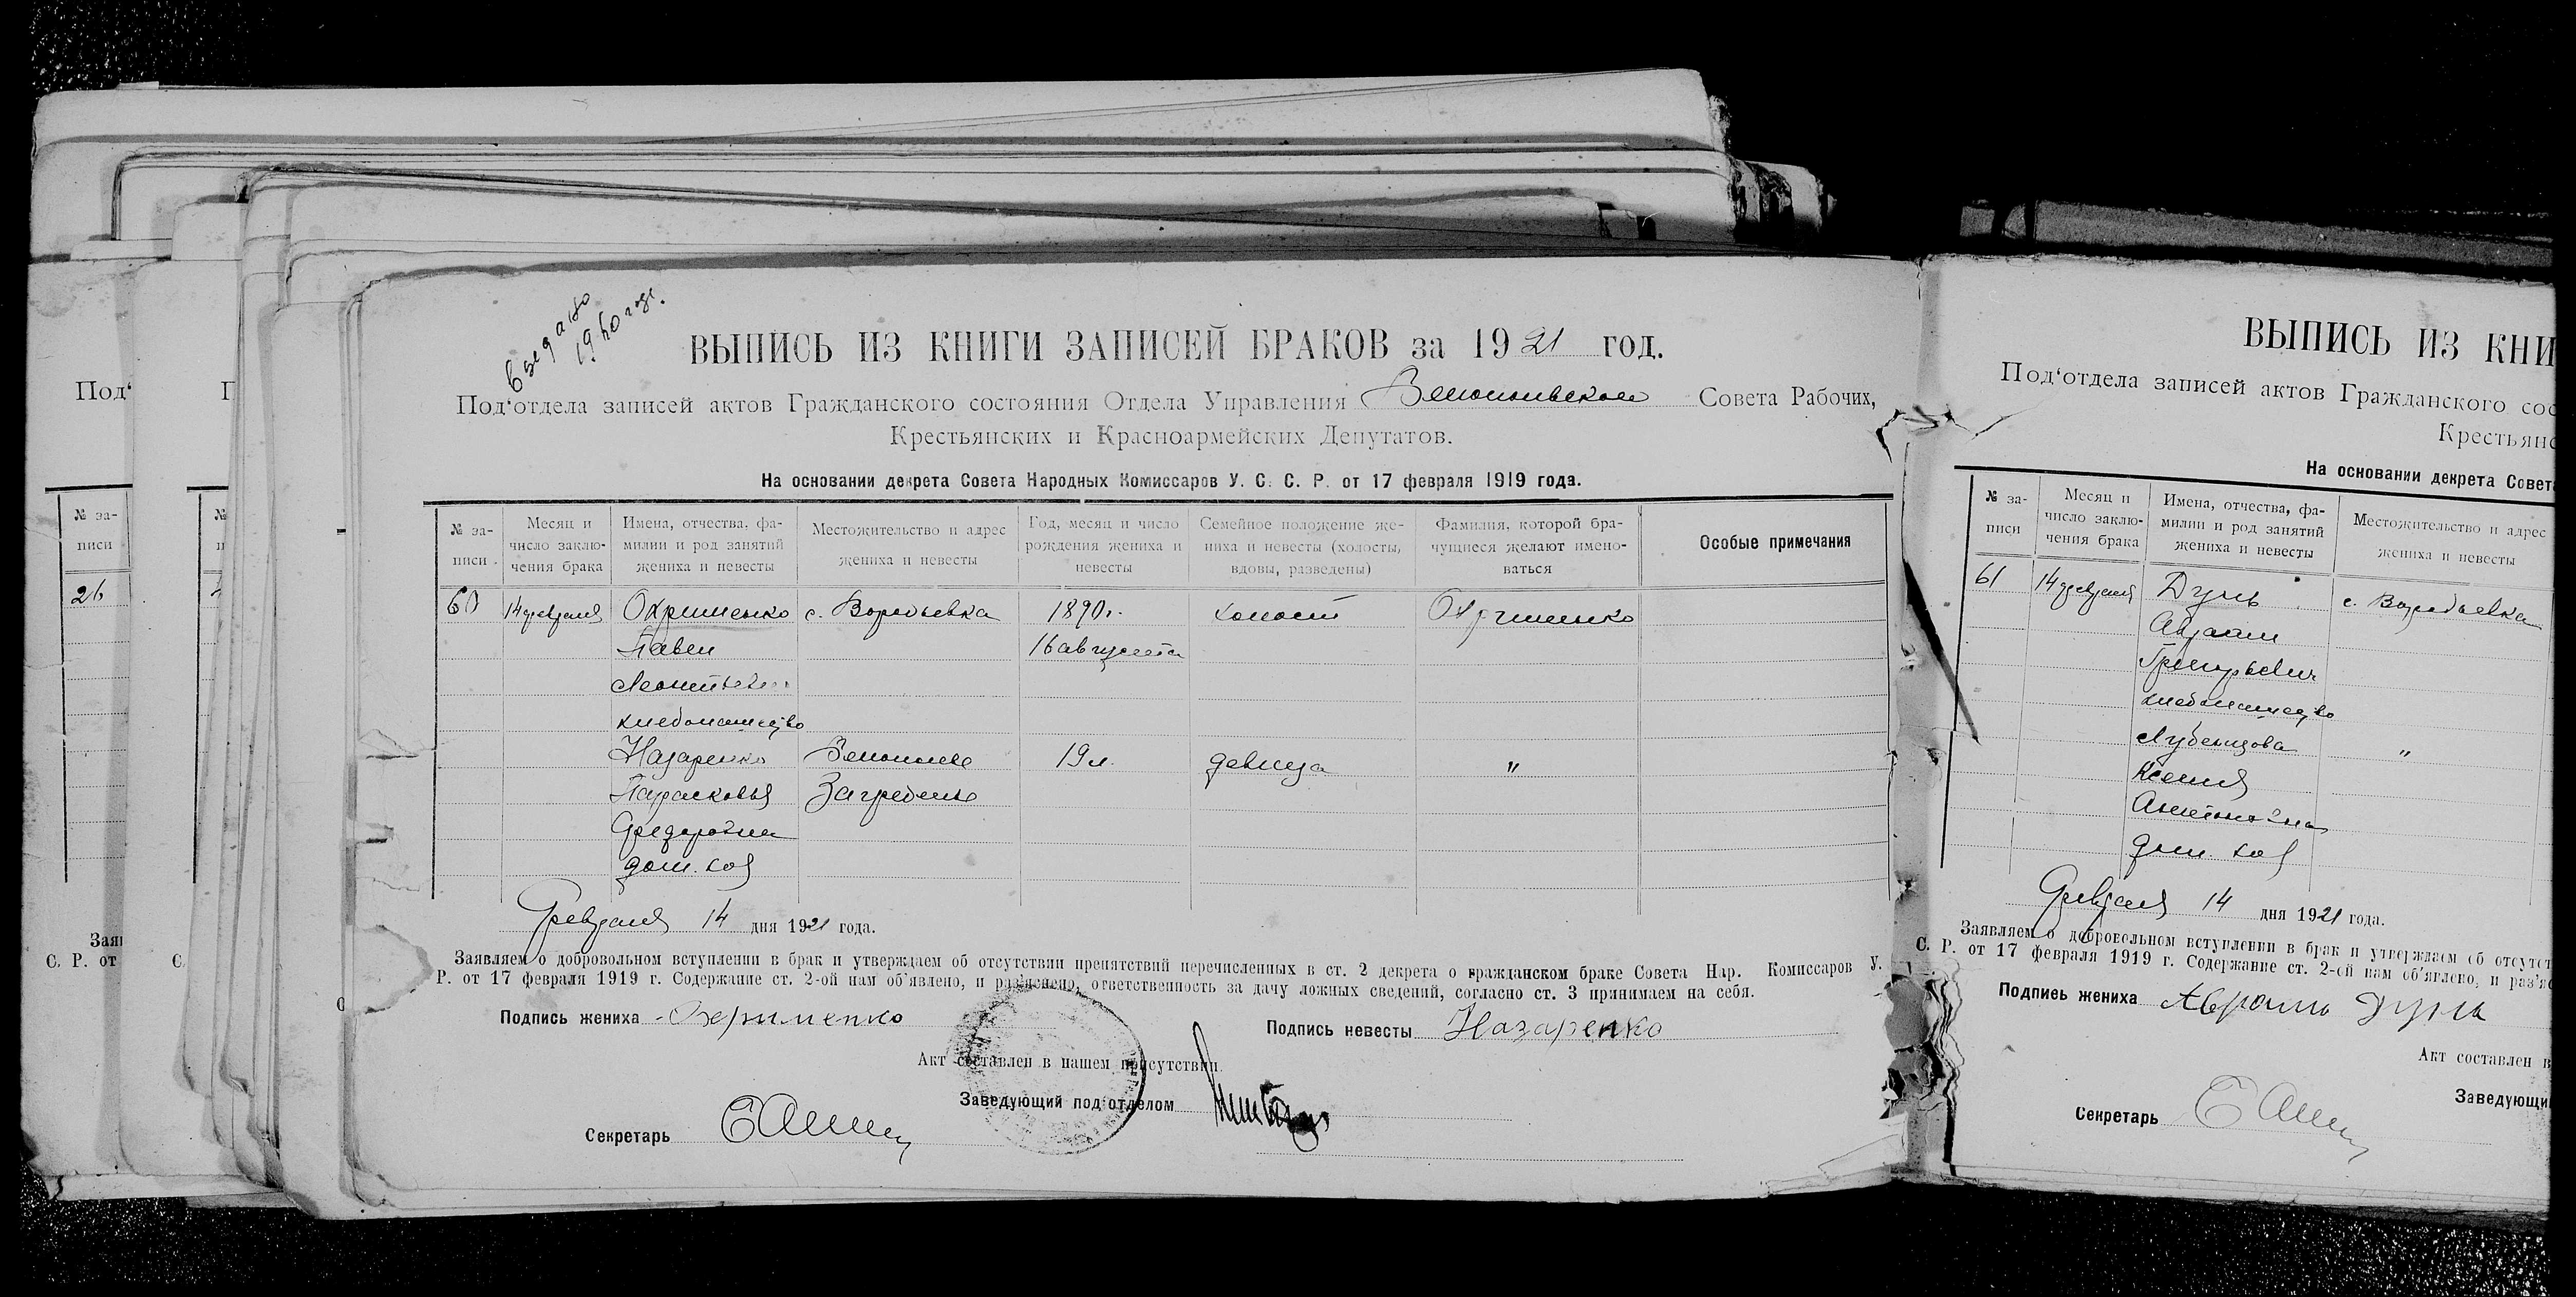 ВЫПИСЬ ИЗ КНИГИ ЗАПИСЕЙ БРАКОВ за 1921 год.
Под‘отдела записей актов Гражданского состояния Отдела Управления Совета Рабочих,
Крестьянских и Красноармейских Депутатов.
На основании декрета Совета Народных Комиссаров У. С. С. Р. от 17 февраля 1919 года.
№ за-
писи
Месяц и
число заклю-
чения брака
Имена, отчества, фа-
милии и род занятий
жениха и невесты
Местожительство и адрес
жениха и невесты
Год, месяц и число
рождения жениха и
невесты
Семейное положение же-
ниха и невесты (холосты,
вдовы, разведены)
Фамилия, которой бра-
чущиеся желают имено-
ваться
Особые примечания
60 14 февраля Охрименко с. Воробьевка 1890 г. холост Охрименко
Павел 16 августа
Леонтьевич
хлебопашество
Назаренко 19 л. девица "
Парасковья
Федоровна
дом. хоз
Февраля 14 дня 1921 года.
Заявляем о добровольном вступлении в брак и утверждаем об отсутствии препятствий перечисленных в ст. 2 декрета о гражданском браке Совета Нар. Комиссаров У.
Р. от 17 февраля 1919 г. Содержание ст. 2-ой нам об‘явлено, и раз‘яснено, ответственность за дачу ложных сведений, согласно ст. 3 принимаем на себя.
Подпись жениха Охрименко
Подпись невесты Назаренко
Акт составлен в нашем присутствии.
Заведующий под‘отделом
Секретарь
ВЫПИСЬ ИЗ КНИ
Под‘отдела записей актов Гражданского сос
Крестьянс
На основании декрета Совета
№ за-
писи
Месяц и
число заклю-
чения брака
Имена, отчества, фа-
милии и род занятий
жениха и невесты
Местожительство и адрес
жениха и невесты
61 14 февраля Дунь с. Воробьевка
Авраам
Григорьевич
хлебопашество
Лубенцова "
Ксения
Антоновна
дом. хоз
Февраля 14 дня 1921 года.
Заявляем о добровольном вступлении в брак и утверждаем об отсутст
С. Р. от 17 февраля 1919 г. Содержание ст. 2-ой нам об‘явлено, и раз‘яс
Подпись жениха Авраам Дунь
Акт составлен в
Заведующи
Секретарь
Под‘
№ за-
писи
26
Заяв
С. Р. от